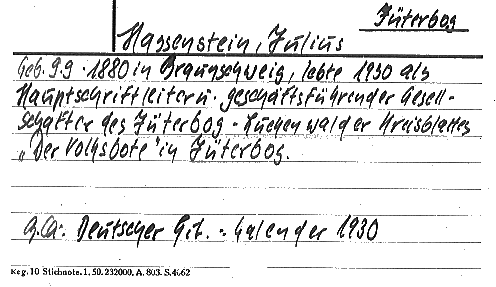 Jüterbog
Hassenstein, Julius
Geb. 9.9.1880 in Braunschweig, lebte 1930 als
Hauptschriftleiter u. geschäftsführender Gesell-
schafter des Jüterbog-Luckenwalder Kreisblattes
„Der Volksbote" in Jüterbog.
Deutscher Lit.-Kalender 1930
Reg. 10 Stichnote. 1, 50. 232000, A. 803. S. 4662